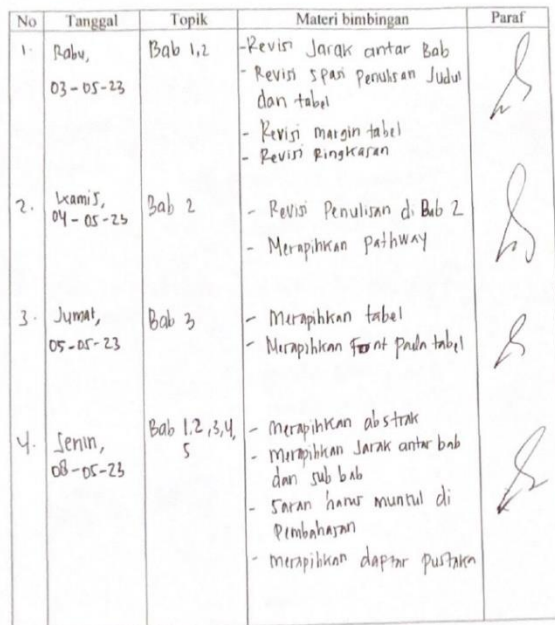 No Tanggal Topik Materi bimbingan Paraf
1. Rabu, Bab 1,2 - Revisi Jarak antar Bab
03-05-23 - Revisi spasi Penulisan Judul
dan tabel
- Revisi margin tabel
- Revisi Ringkasan
2. Kamis, Bab 2 - Revisi Penulisan di Bab 2
04-05-23 - Merapihkan pathway
3. Jumat, Bab 3 - Merapihkan tabel
05-05-23 - Merapihkan Font pada tabel
4. Senin, Bab 1,2,3,4, - merapihkan abstrak
08-05-23 5 - merapihkan Jarak antar bab
dan sub bab
- Saran harus muncul di
Pembahasan
- merapihkan daptar pustaka